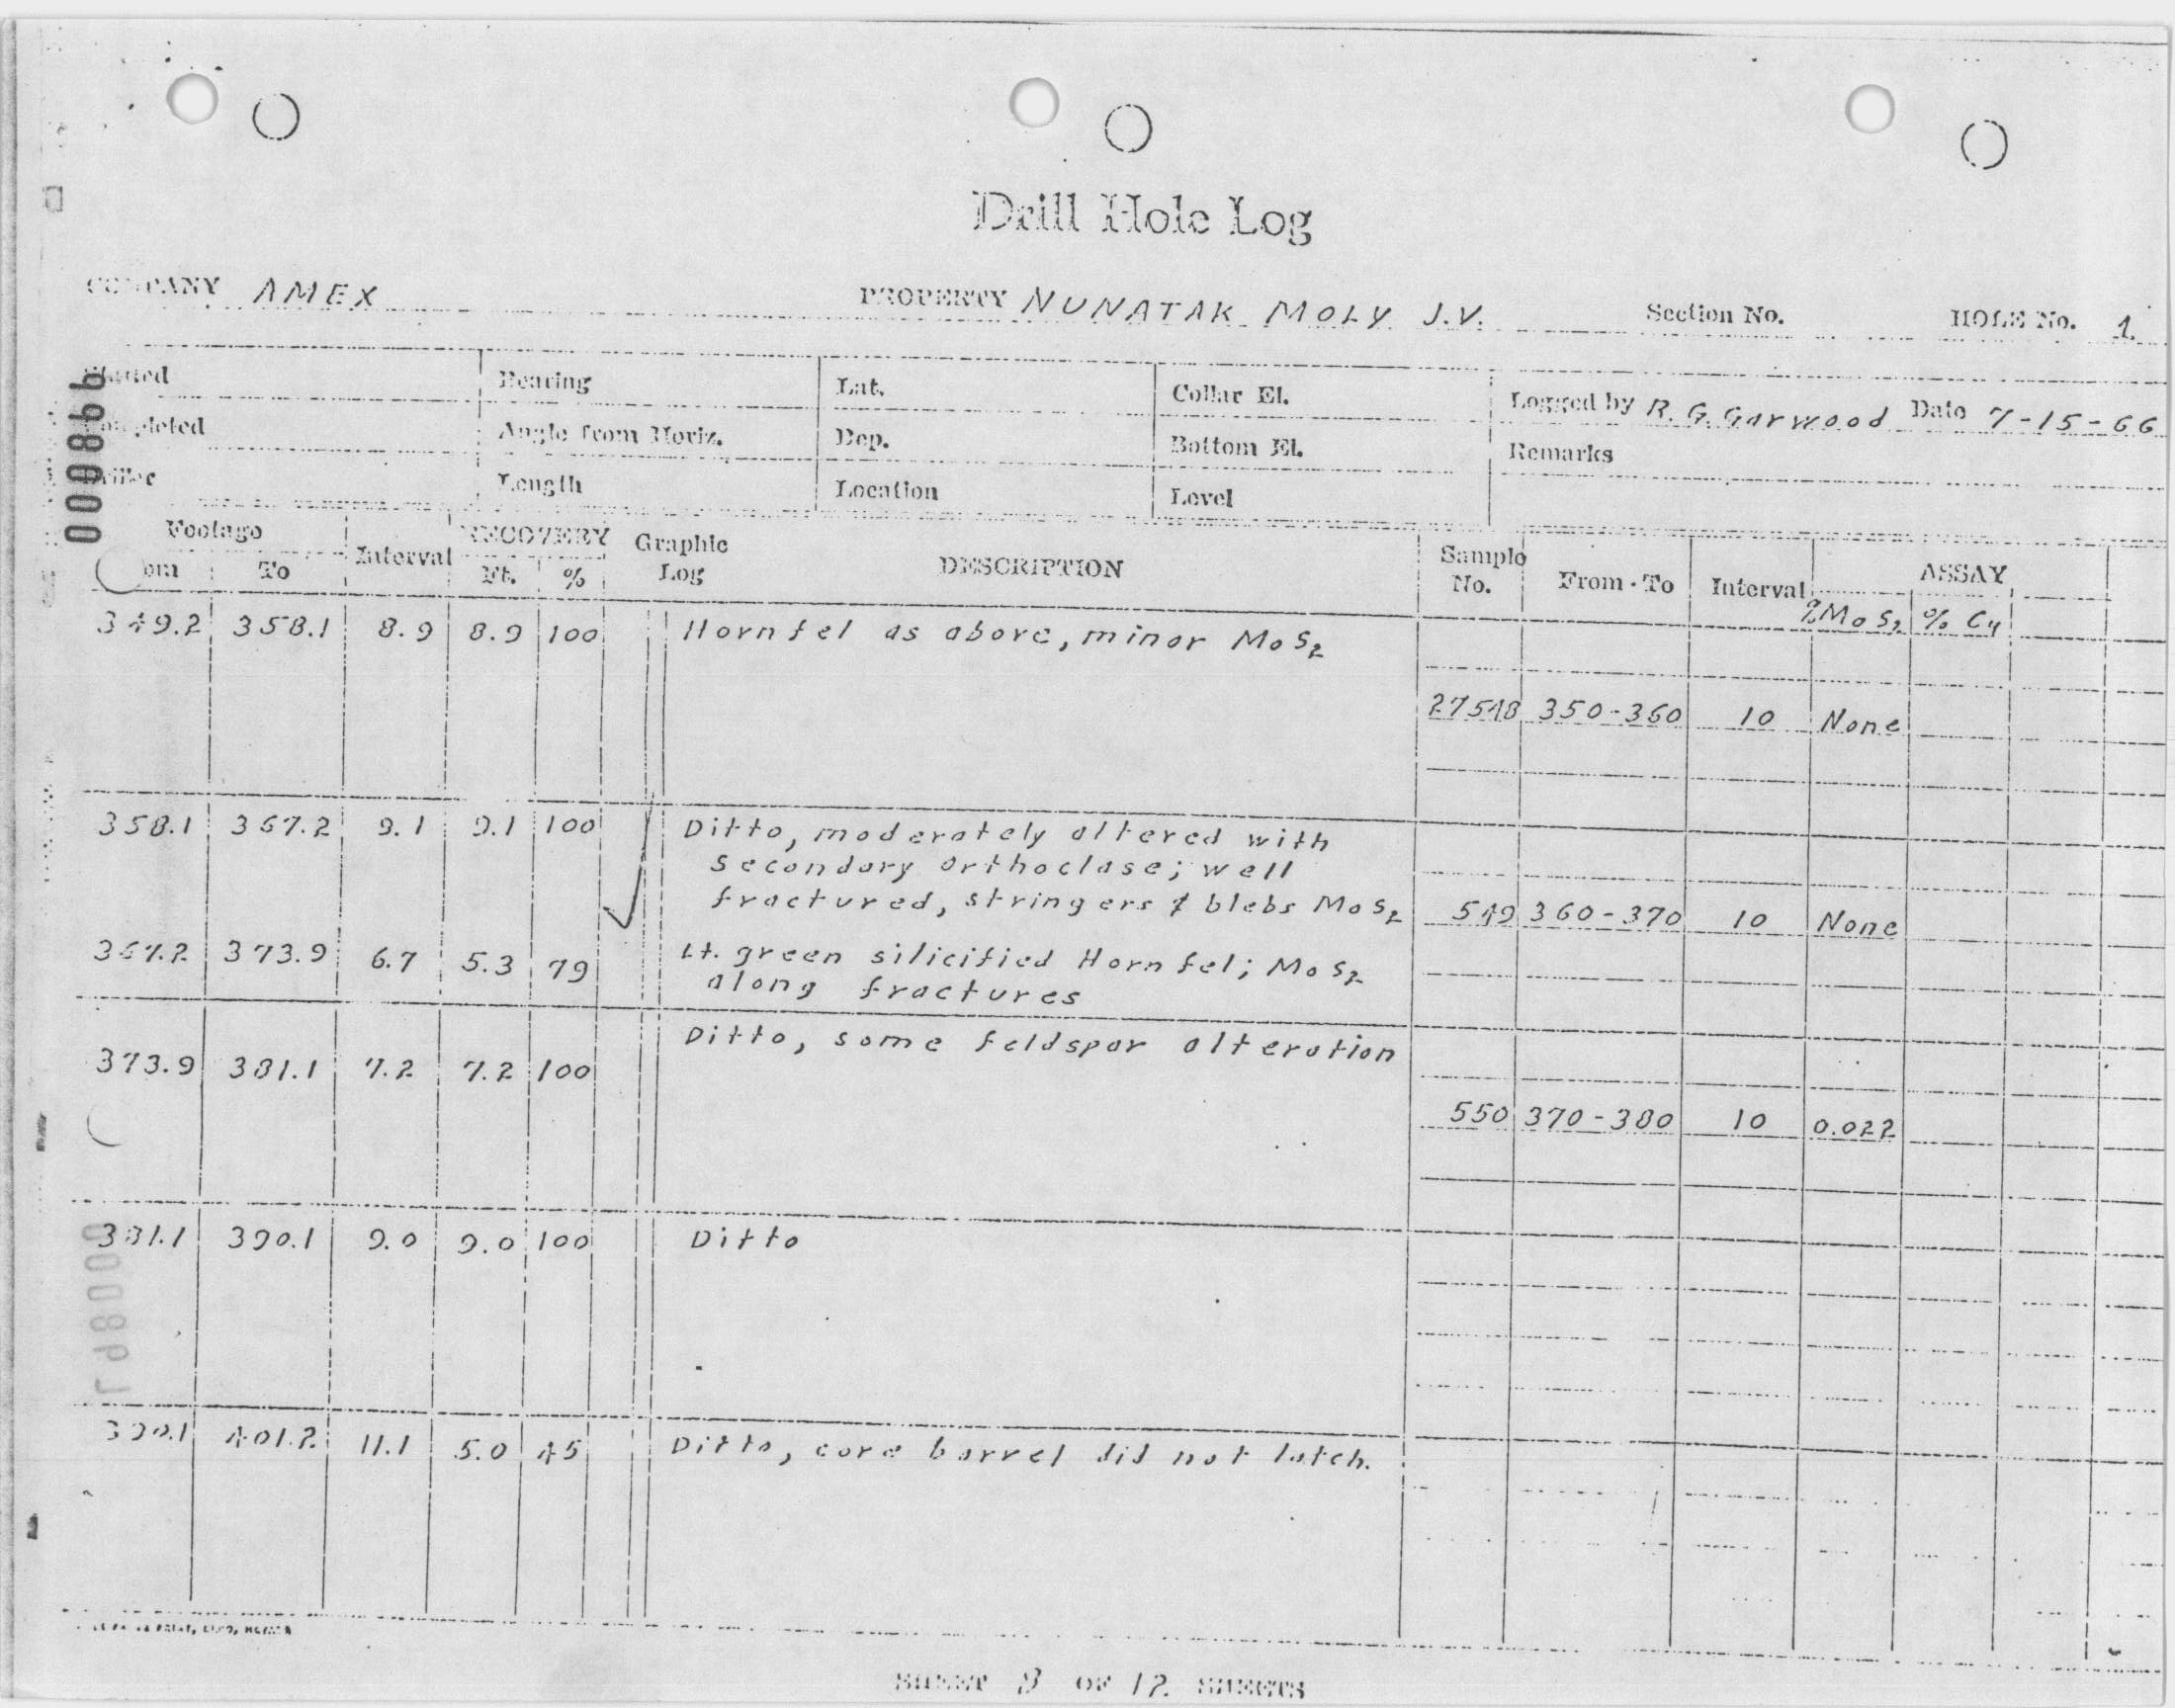 Drill Hole Log
COMPANY AMEX PROPERTY NUNATAK MOLY J.V. Section No. HOLE No. 1
Started Bearing Lat. Collar El. Logged by R. G. Garwood Date 7-15-66
Completed Angle from Horiz. Dep. Bottom El. Remarks
Driller Length Location Level
Footage Interval RECOVERY Graphic Log DESCRIPTION Sample No. From - To Interval ASSAY
From To Ft. % %MoS2 % Cu
349.2 358.1 8.9 8.9 100 Hornfel as above, minor MoS2
27548 350-360 10 None
358.1 367.2 9.1 9.1 100 Ditto, moderately altered with
secondary orthoclase; well
fractured, stringers & blebs MoS2 549 360-370 10 None
367.2 373.9 6.7 5.3 79 Lt. green silicified Hornfel; MoS2
along fractures
373.9 381.1 7.2 7.2 100 Ditto, some feldspar alteration
550 370-380 10 0.022
381.1 390.1 9.0 9.0 100 Ditto
390.1 401.2 11.1 5.0 45 Ditto, core barrel did not latch.
SHEET OF 12 SHEETS